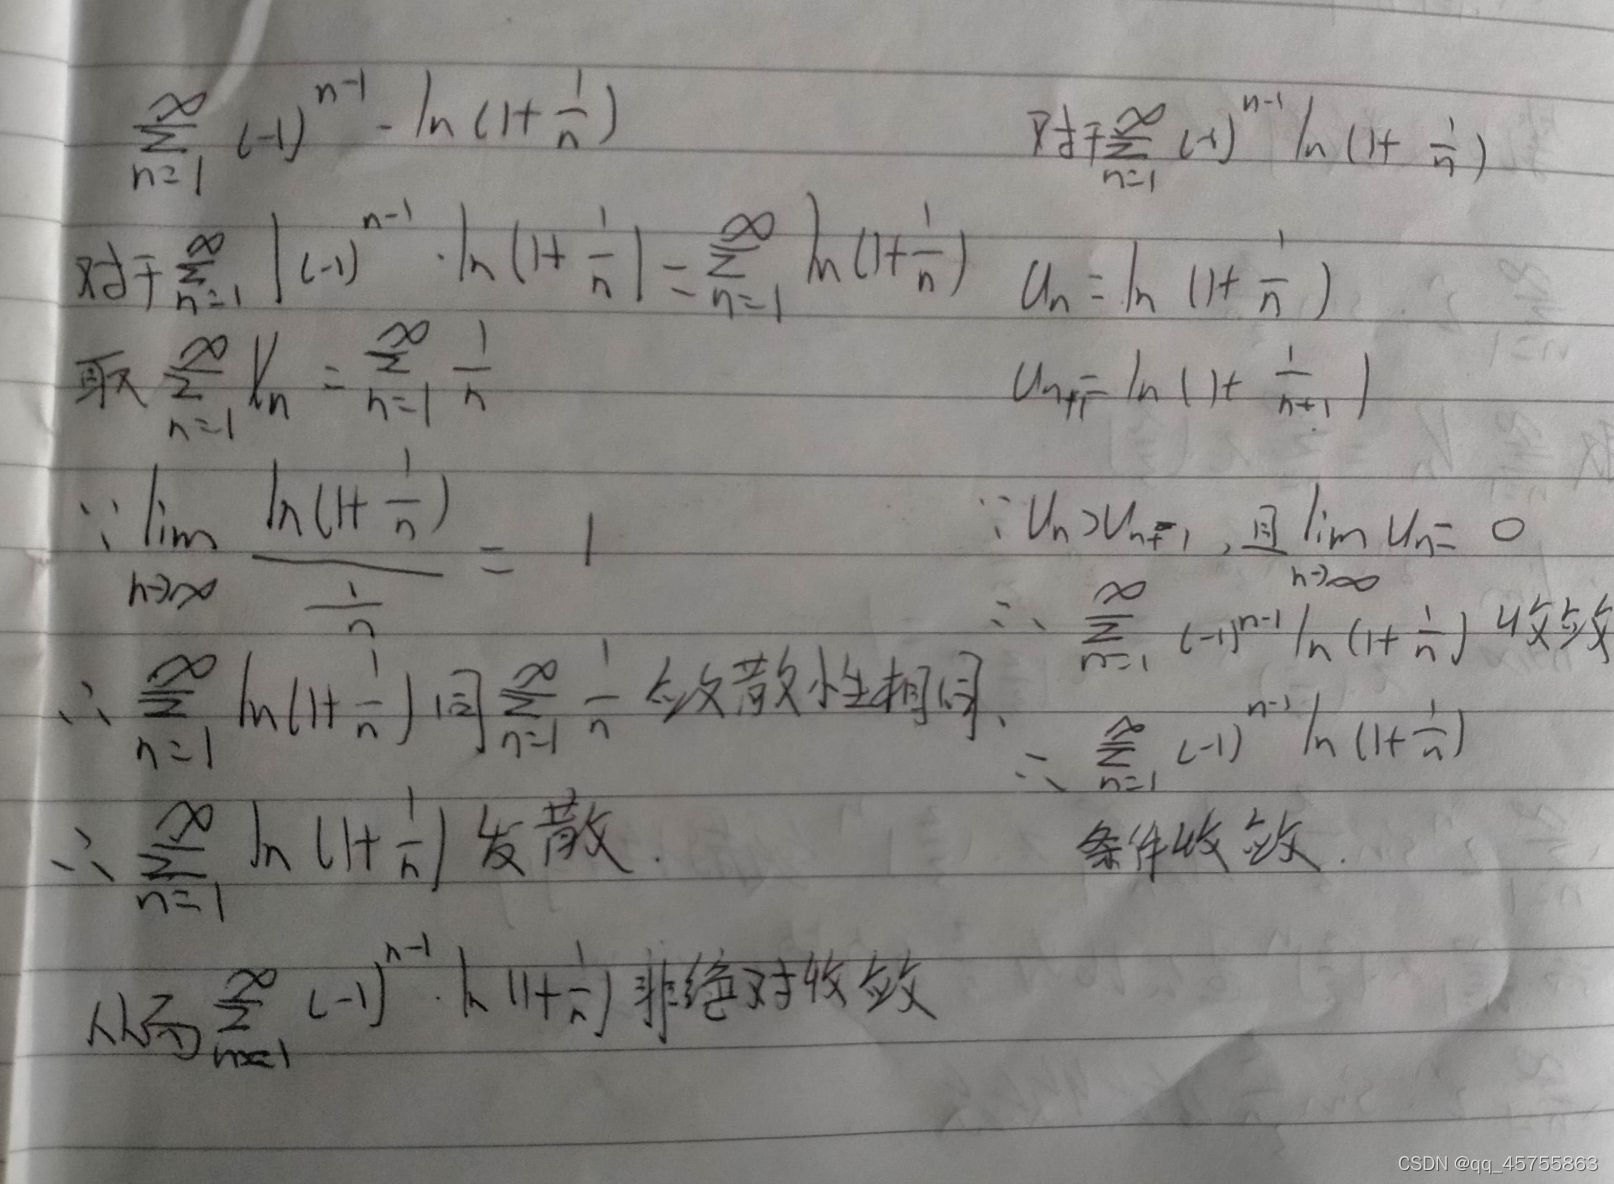 ∑_{n=1}^{∞} (-1)^{n-1} · ln(1+1/n)
对于∑_{n=1}^{∞} |(-1)^{n-1} · ln(1+1/n| = ∑_{n=1}^{∞} ln(1+1/n)
取 ∑_{n=1}^{∞} Vn = ∑_{n=1}^{∞} 1/n
∵ lim_{n→∞} ln(1+1/n) / (1/n) = 1
∴ ∑_{n=1}^{∞} ln(1+1/n) 同 ∑_{n=1}^{∞} 1/n 敛散性相同.
∴ ∑_{n=1}^{∞} ln(1+1/n) 发散.
从而 ∑_{n=1}^{∞} (-1)^{n-1} · ln(1+1/n) 非绝对收敛
对于∑_{n=1}^{∞} (-1)^{n-1} ln(1+1/n)
Un = ln(1+1/n)
Un+1 = ln(1+1/(n+1))
∵ Un>Un+1, 且 lim_{n→∞} Un = 0
∴ ∑_{n=1}^{∞} (-1)^{n-1} ln(1+1/n) 收敛
∴ ∑_{n=1}^{∞} (-1)^{n-1} ln(1+1/n)
条件收敛.
CSDN @qq_45755863